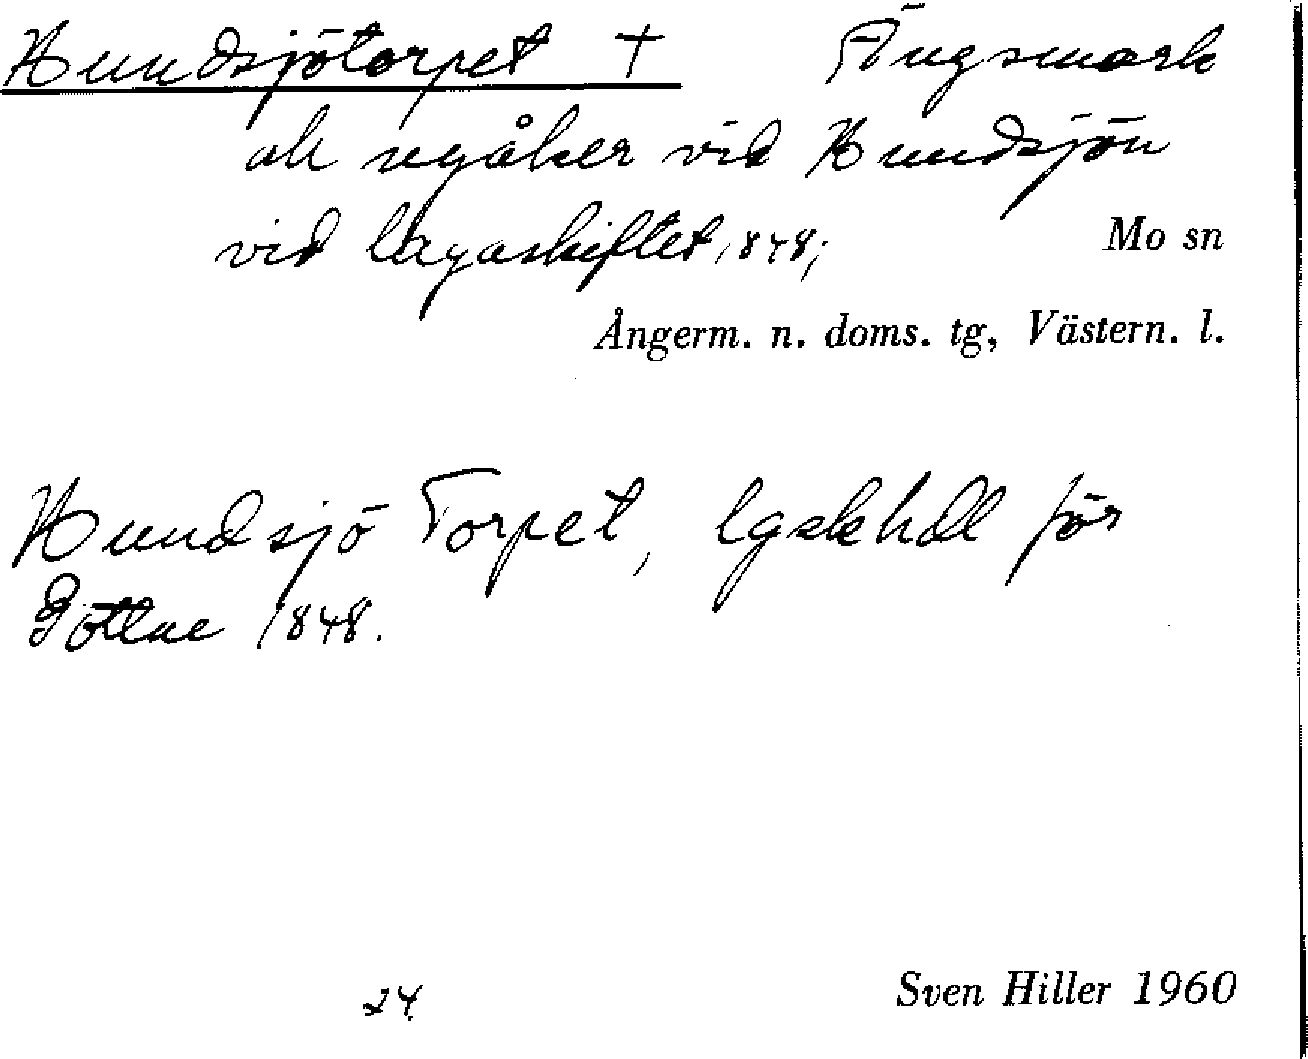 Hundsjötorpet † Ängsmark
ok nyåker vid Hundsjön
vid lagaskiftet 1848; Mo sn
Ångerm. n. doms. tg, Västern. l.
Hundsjö Torpet, lgskhdl för
Gottne 1848.
24 Sven Hiller 1960